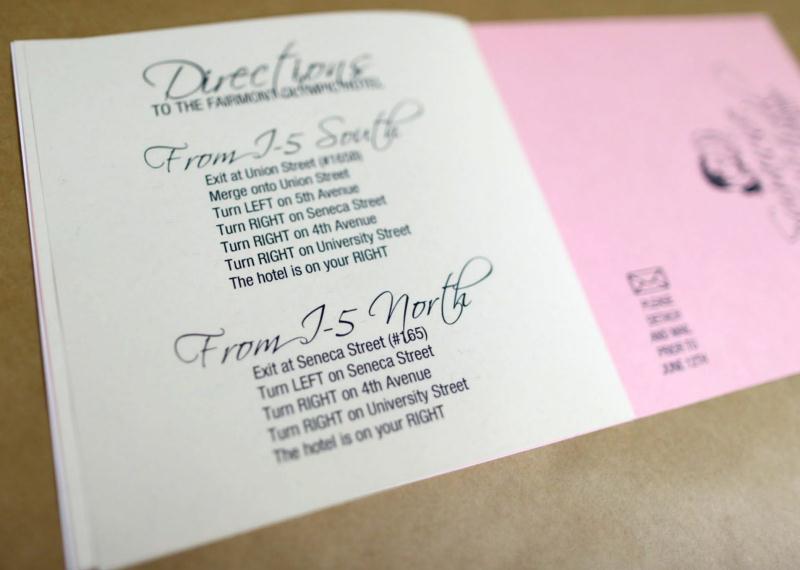 Directions
TO THE FAIRMONT OLYMPIC HOTEL
From I-5 South
Exit at Union Street (#165B)
Merge onto Union Street
Turn LEFT on 5th Avenue
Turn RIGHT on Seneca Street
Turn RIGHT on 4th Avenue
Turn RIGHT on University Street
The hotel is on your RIGHT
From I-5 North
Exit at Seneca Street (#165)
Turn LEFT on Seneca Street
Turn RIGHT on 4th Avenue
Turn RIGHT on University Street
The hotel is on your RIGHT
PLEASE
DETACH
AND MAIL
PRIOR TO
JUNE 12TH